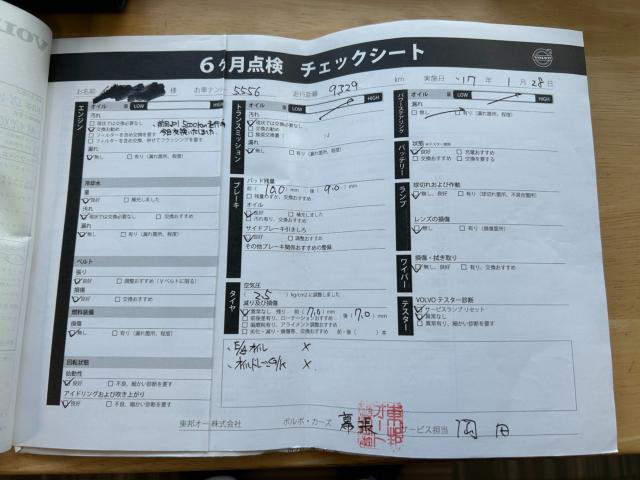 6ヶ月点検 チェックシート
VOLVO
お名前 様 お車ナンバー 5556 走行距離 9329 km 実施日 '17 年 1 月 28 日
エンジン
オイル 量 LOW HIGH
汚れ
□現状では交換必要なし
□交換お勧め
□フィルターを含め交換を要す
□フィルターを含め交換、併せてフラッシングを要す
漏れ
□無し □有り(漏れ箇所、程度)
冷却水
量
□良好 □補充しました
汚れ
□現状では交換必要なし □交換おすすめ
漏れ
□無し □有り(漏れ箇所、程度)
ベルト
張り
□良好 □調整おすすめ(Vベルトに限る)
損傷
□良好 □交換おすすめ
燃料装備
損傷
□無し □有り(漏れ箇所、程度)
回転状態
始動性
□良好 □不良、細かい診断を要す
アイドリングおよび吹き上がり
□良好 □不良、細かい診断を要す
トランスミッション
オイル 量 LOW HIGH
汚れ
□現状では交換必要なし
□交換お勧め
漏れ
□無し □有り(漏れ箇所、程度)
ブレーキ
パッド残量
前( 10.0 )mm 後( 9.0 )mm
□残量わずか、交換おすすめ
オイル
□良好 □補充しました
□汚れ有り、交換おすすめ
サイドブレーキ引きしろ
□良好 □調整おすすめ
その他ブレーキ関係おすすめの整備
タイヤ
空気圧
( 2.5 )kg/cm2に調整しました
減り及び損傷
□異常なし 残り 前( 7.0 )mm 後( 7.0 )mm
□前後差有り、ローテーションおすすめ
□偏磨耗有り、アライメント調整おすすめ
□劣化・減り・損傷等、交換おすすめ 前・後( )本
パワーステアリング
オイル 量 LOW HIGH
漏れ
□無し □有り(漏れ箇所、程度)
バッテリー
状態 ※テスター使用
□良好 □充電おすすめ
□交換おすすめ □交換を要する
ランプ
球切れおよび作動
□無し □有り(球切れ箇所、不具合箇所)
レンズの損傷
□無し □有り(損傷箇所)
ワイパー
損傷・拭き取り
□無し、良好 □有り、交換おすすめ
テスター
VOLVO テスター診断
□サービスランプ リセット
□異常なし
□異常有り、細かい診断を要す
E/G オイル ×
東邦オート株式会社 ボルボ・カーズ 幕張 サービス担当 岡田